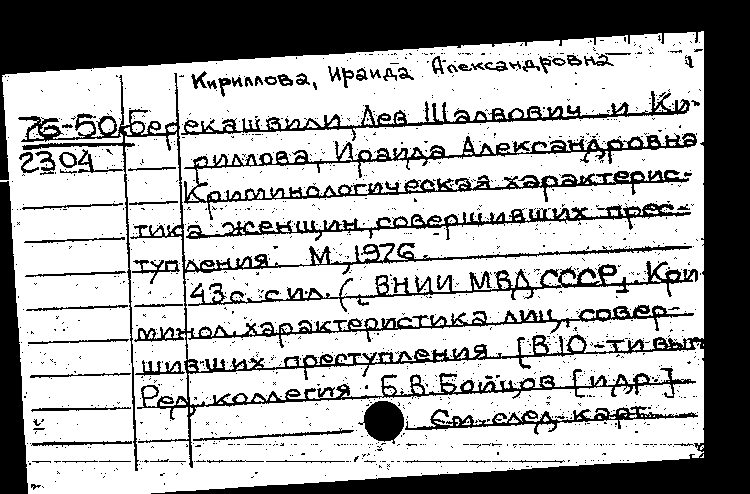 Кириллова, Ираида Александровна
76-50 Берекашвили, Лев Шалвович и Ки-
2304 риллова, Ираида Александровна.
Криминологическая характерис-
тика женщин, совершивших прес-
тупления. М., 1976.
43с. с ил. ( [ВНИИ МВД СССР]. Кри-
минол. характеристика лиц, совер-
шивших преступления. [В 10-ти вып.
Ред. коллегия: Б.В. Бойцов [и др.]
См. след. карт.